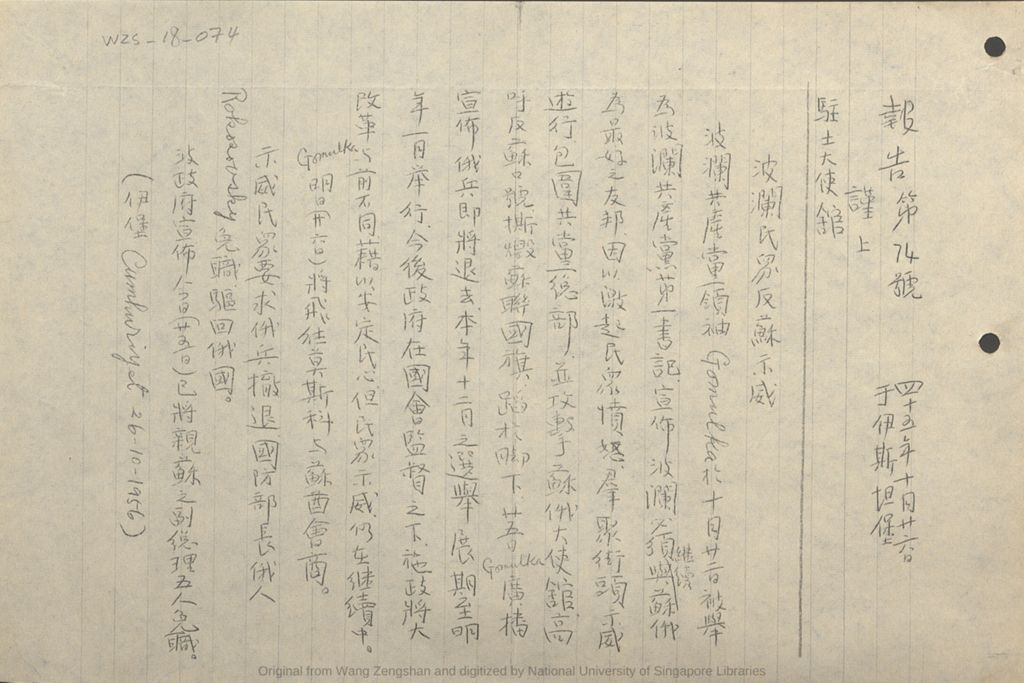 WZS-18-074
報告第74號
四十五年十月廿六日
于伊斯坦堡
謹上
駐土大使館
波瀾民眾反蘇示威
波瀾共產黨領袖 Gomulka 於十月廿一日被舉
為波瀾共產黨第一書記，宣佈波瀾必須繼續與蘇俄
為最好之友邦因以激起民眾憤怒，羣聚街頭示威
遊行，包圍共黨總部，並攻擊蘇俄大使館，高
呼反蘇口號撕燬蘇聯國旗，蹈於脚下，廿五日 Gomulka 廣播
宣佈俄兵即將退去，本年十二月之選舉展期至明
年一月舉行，今後政府在國會監督之下，施政將大
改革與前不同藉以安定民心，但民眾示威仍在継續中。
Gomulka 明日(廿六日)將飛往莫斯科與蘇酋會商。
示威民眾要求俄兵撤退，國防部長俄人
Rokossovsky 免職驅回俄國。
波政府宣佈今日(廿五日)已將親蘇之副總理五人免職。
(伊堡 Cumhuriyet 26-10-1956)
Original from Wang Zengshan and digitized by National University of Singapore Libraries